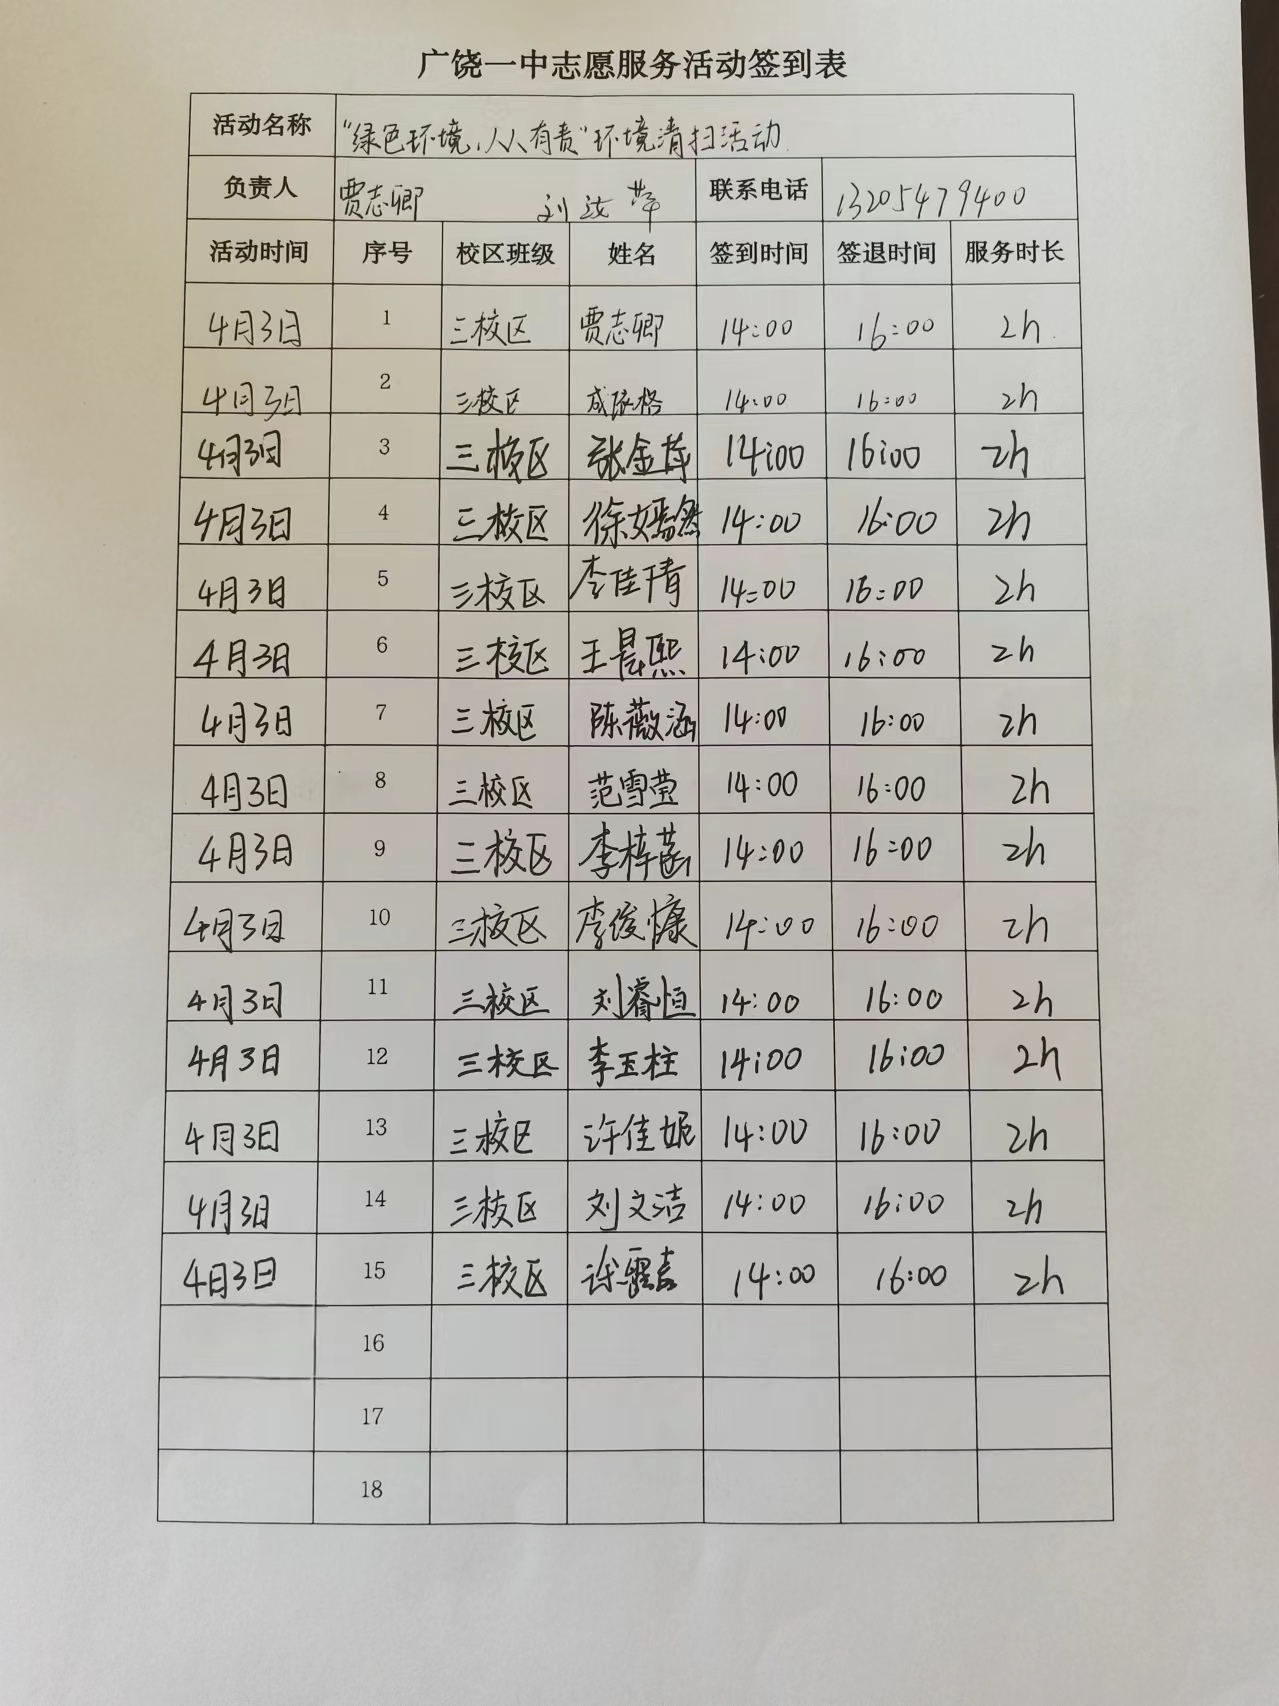 广饶一中志愿服务活动签到表
活动名称 "绿色环境,人人有责"环境清扫活动
负责人 贾志卿 刘汝萍 联系电话 13205479400
活动时间 序号 校区班级 姓名 签到时间 签退时间 服务时长
4月3日 1 三校区 贾志卿 14:00 16:00 2h
4月3日 2 三校区 成依格 14:00 16:00 2h
4月3日 3 三校区 张金萍 14:00 16:00 2h
4月3日 4 三校区 徐嫣然 14:00 16:00 2h
4月3日 5 三校区 李佳倩 14:00 16:00 2h
4月3日 6 三校区 王晨熙 14:00 16:00 2h
4月3日 7 三校区 陈薇涵 14:00 16:00 2h
4月3日 8 三校区 范雪莹 14:00 16:00 2h
4月3日 9 三校区 李梓菡 14:00 16:00 2h
4月3日 10 三校区 李俊慷 14:00 16:00 2h
4月3日 11 三校区 刘睿恒 14:00 16:00 2h
4月3日 12 三校区 李玉柱 14:00 16:00 2h
4月3日 13 三校区 许佳妮 14:00 16:00 2h
4月3日 14 三校区 刘文洁 14:00 16:00 2h
4月3日 15 三校区 14:00 16:00 2h
16
17
18